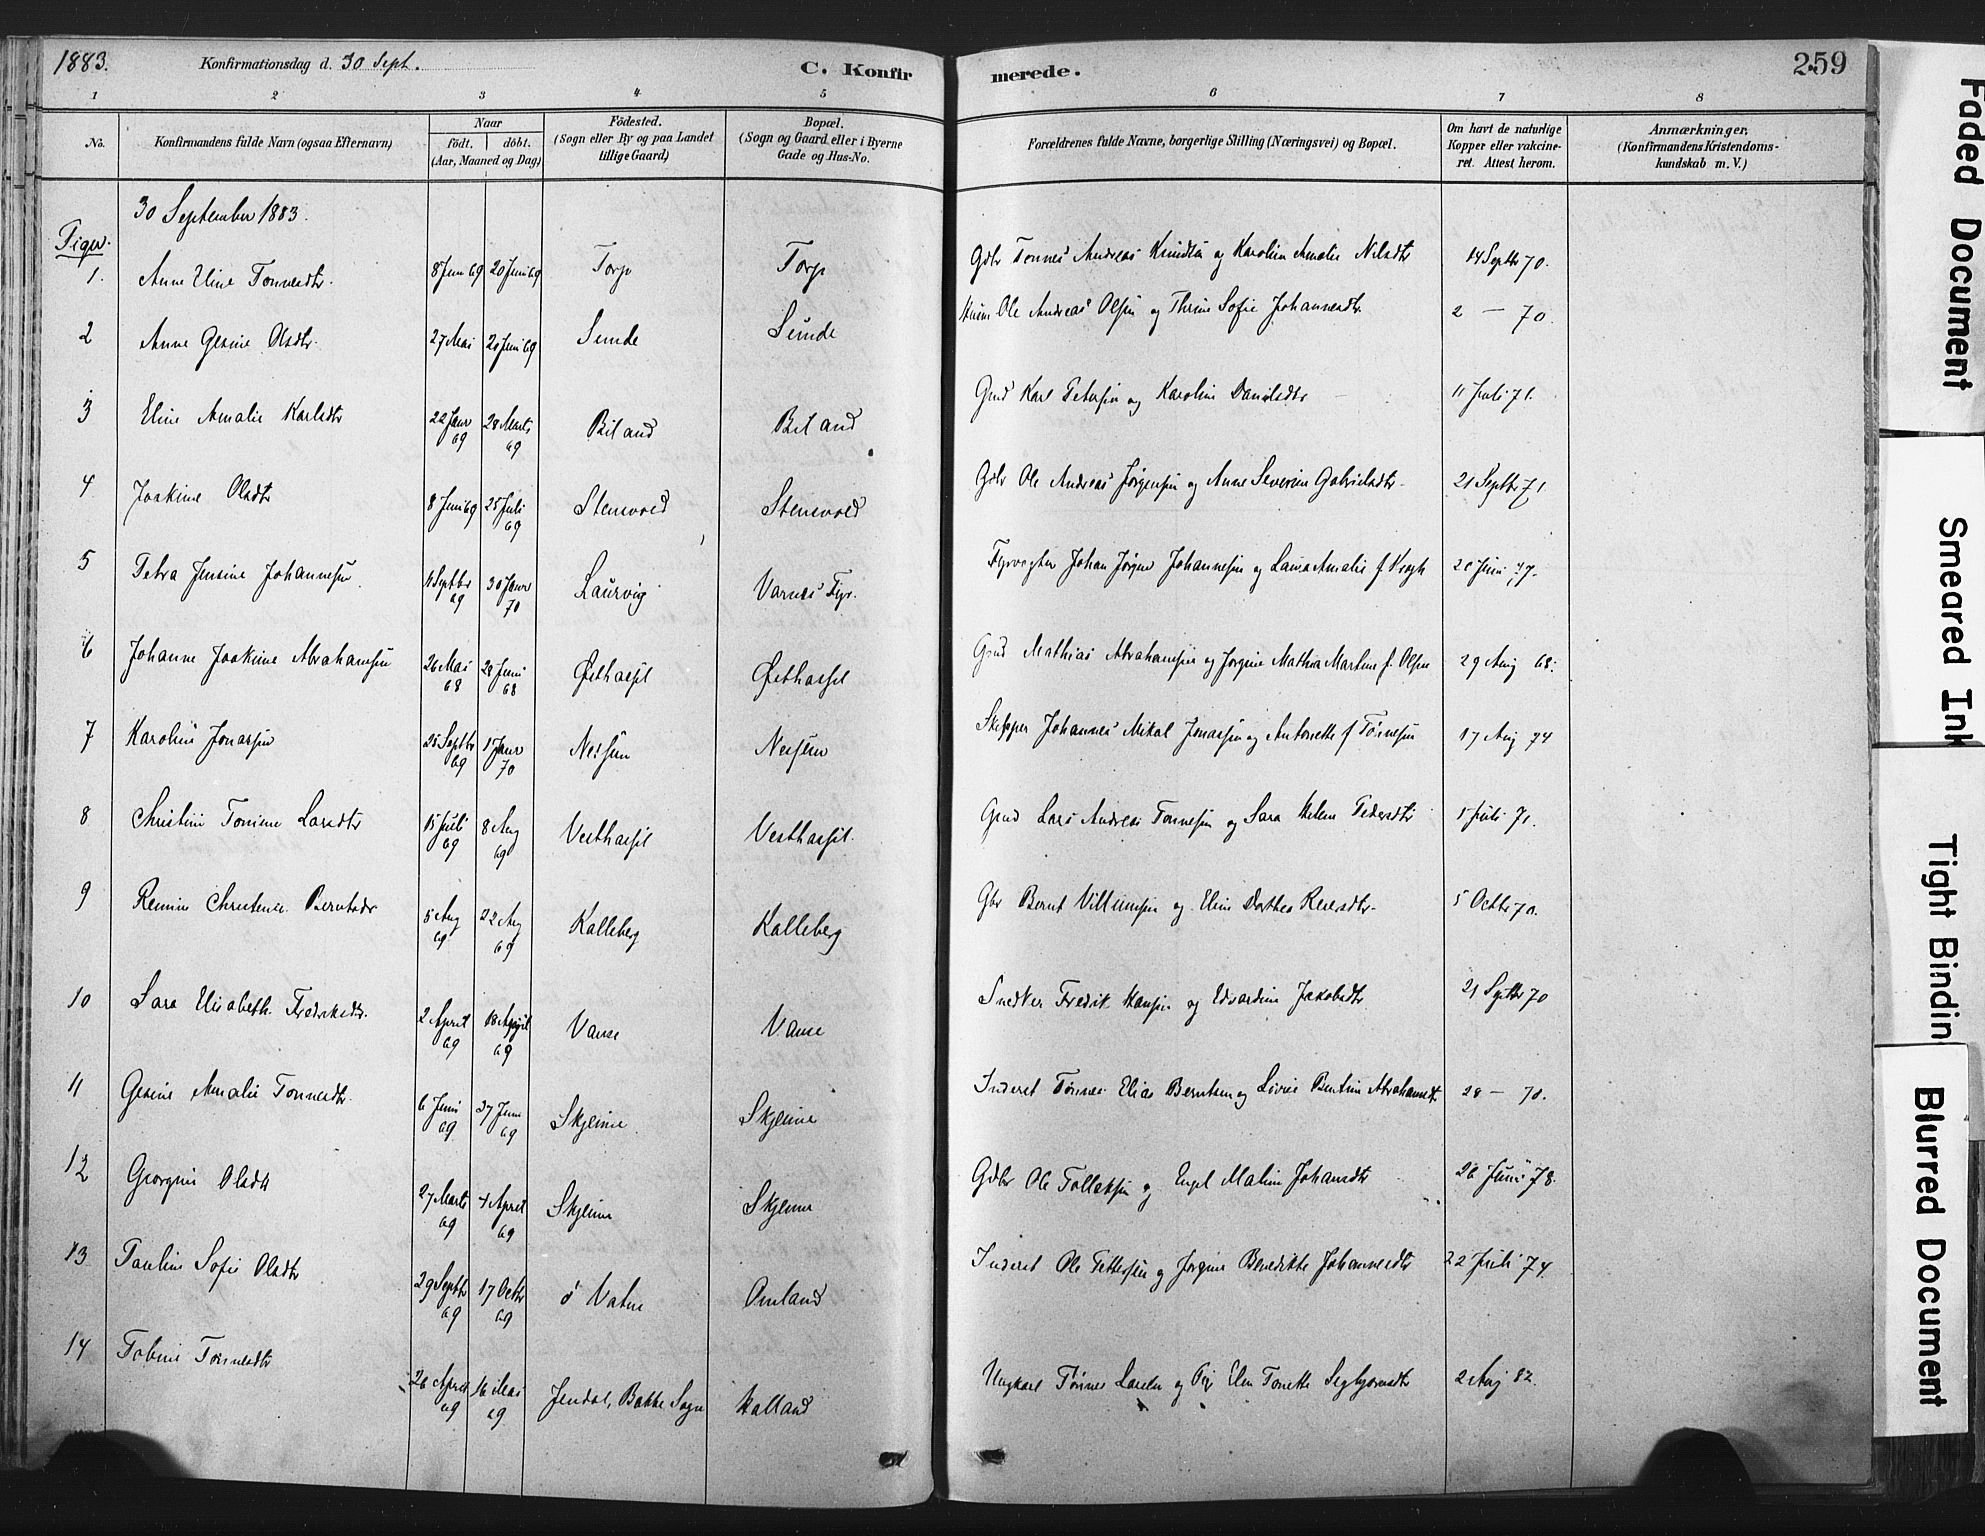 1883. Konfirmationsdag d. 30 Sept. C. Konfirmerede. 259
1 2 3 4 5 6 7 8
No. Konfirmandens fulde Navn (ogsaa Efternavn) Naar født. døbt. (Aar, Maaned og Dag) Fødested. (Sogn eller By og paa Landet tillige Gaard) Bopæl. (Sogn og Gaard eller i Byerne Gade og Hus-No. Forældrenes fulde Navne, borgerlige Stilling (Næringsvei) og Bopæl. Om havt de naturlige Kopper eller vakcineret. Attest herom. Anmærkninger. (Konfirmandens Kristendomskundskab m. V.)
30 September 1883.
Piger.
1. Anne Eline Tonnesdtr. 8 Juni 69 20 Juni 69 Torp Torp Gdbr Tonnes Andreas Knudsen og Karoline Amalie Nilsdtr 14 Septbr 70.
2 Anne Gesine Olsdtr. 27 Mai 20 Juni 69 Sunde Sunde Ole Andreas Olsen og Thrine Sofie Johannesdtr 2 — 70.
3 Eline Amalie Karlsdtr 22 Janr 69 28 Marts 69 Biland Biland Gmd Karl Petersen og Karoline Danielsdtr 11 Juli 71.
4 Joakime Olsdtr 8 Juni 69 25 Juli 69 Stensvold Stensvold Gdbr Ole Andreas Jørgensen og Anne Severine Gabrielsdtr. 21 Septbr 71
5 Petra Jensine Johannesen 11 Septbr 69 30 Janr 70 Laurvig Varnes Fyr. Fyrvogter Johan Jørgen Johannesen og Laura Amalie f. Krogh 20 Juni 77.
6 Johanne Joakime Abrahamsen 26 Mai 68 28 Juni 68 Østhassel Østhassel Gmd Mathias Abrahamsen og Jorgine Mathea Martine f. Olsen 29 Aug 68.
7 Karoline Jonassen 25 Septbr 69 1 Janr 70 Nesheim Nesheim Skipper Johannes Mikal Jonassen og Antonette f Tønnesen 17 Aug 74
8 Christine Tonine Larsdtr 15 Juli 69 8 Aug 69 Vesthassel Vesthassel. Gmd Lars Andreas Tonnesen og Sara Helene Pedersdtr 1 Juli 71.
9 Remine Christence Berntsdr 5 Aug 69 22 Aug 69 Kalleberg Kalleberg Gbr Bernt Villumsen og Eline Dorthea Reiersdtr. 5 Octbr 70.
10 Sara Elisabeth Fredriksdtr. 2 April 69 18 April 69 Vanse Vanse Snedker Fredrik Hansen og Edvardine Jakobsdtr 21 Septbr 70
11 Gesine Amalie Tonnesdtr. 6 Juni 69 27 Juni 69 Skjeime Skjeime Inderst Tønnes Elias Berntsen og Lovise Bentine Abrahamsdt. 28 — 70.
12 Georgine Olsdtr 27 Marts 69 4 April 69 Skjeime Skjeime Gdbr Ole Tollaksen og Engel Malene Johansdtr 26 Juni 78.
13 Pauline Sofie Olsdtr 29 Septbr 69 17 Octbr 69 ø Vatne Omland Inderst Ole Pettersen og Jorgine Benedikte Johannesdtr 22 Juli 74.
14 Tobine Tønnesdtr 26 April 69 16 Mai 69 Jerdal, Bakke Sogn Halland Ungkarl Tønnes Larsen og Pig Elen Tonette Segbjørnsdtr 2 Aug 82.
Faded Document
Smeared Ink
Tight Bindin
Blurred Document